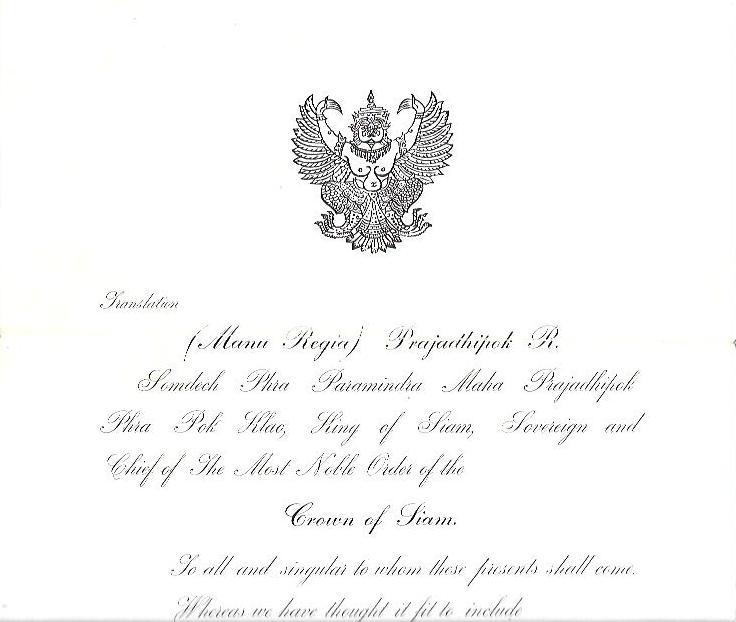 Translation
(Manu Regia) Prajadhipok R.
Somdech Phra Paramindra Maha Prajadhipok
Phra Pok Klao, King of Siam, Sovereign and
Chief of The Most Noble Order of the
Crown of Siam.
To all and singular to whom these presents shall come.
Whereas we have thought it fit to include